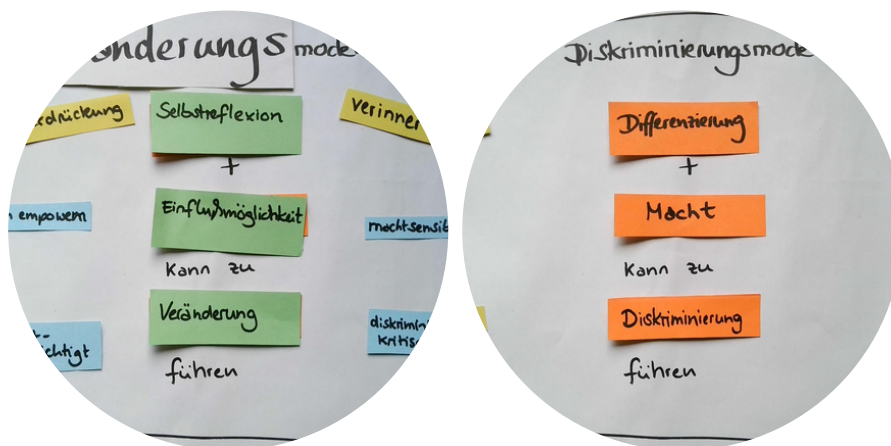 änderungs mode
rdrückung
Selbstreflexion
Verinner
+
empowern
Einflußmöglichkeit
machtsensib
Kann zu
Veränderung
chtigt
diskrimin
kritis
führen
Diskriminierungsmode
Differenzierung
+
Macht
Kann zu
Diskriminierung
führen